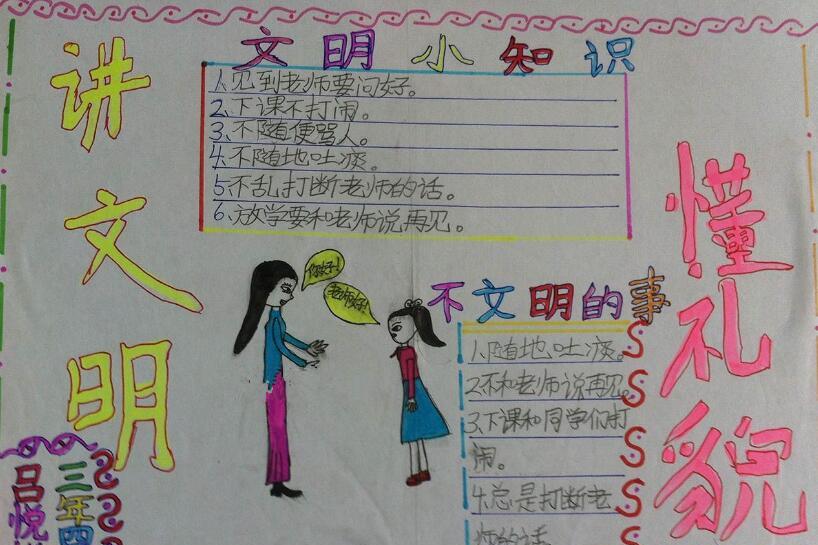 讲文明
文明小知识
1、见到老师要问好。
2、下课不打闹。
3、不随便骂人。
4、不随地吐痰。
5、不乱打断老师的话。
6、放学要和老师说再见。
懂礼貌
你好！
老师好！
不文明的事
1、随地吐痰。
2、不和老师说再见。
3、下课和同学们打
闹。
4、总是打断老
师的话
三年四
吕悦